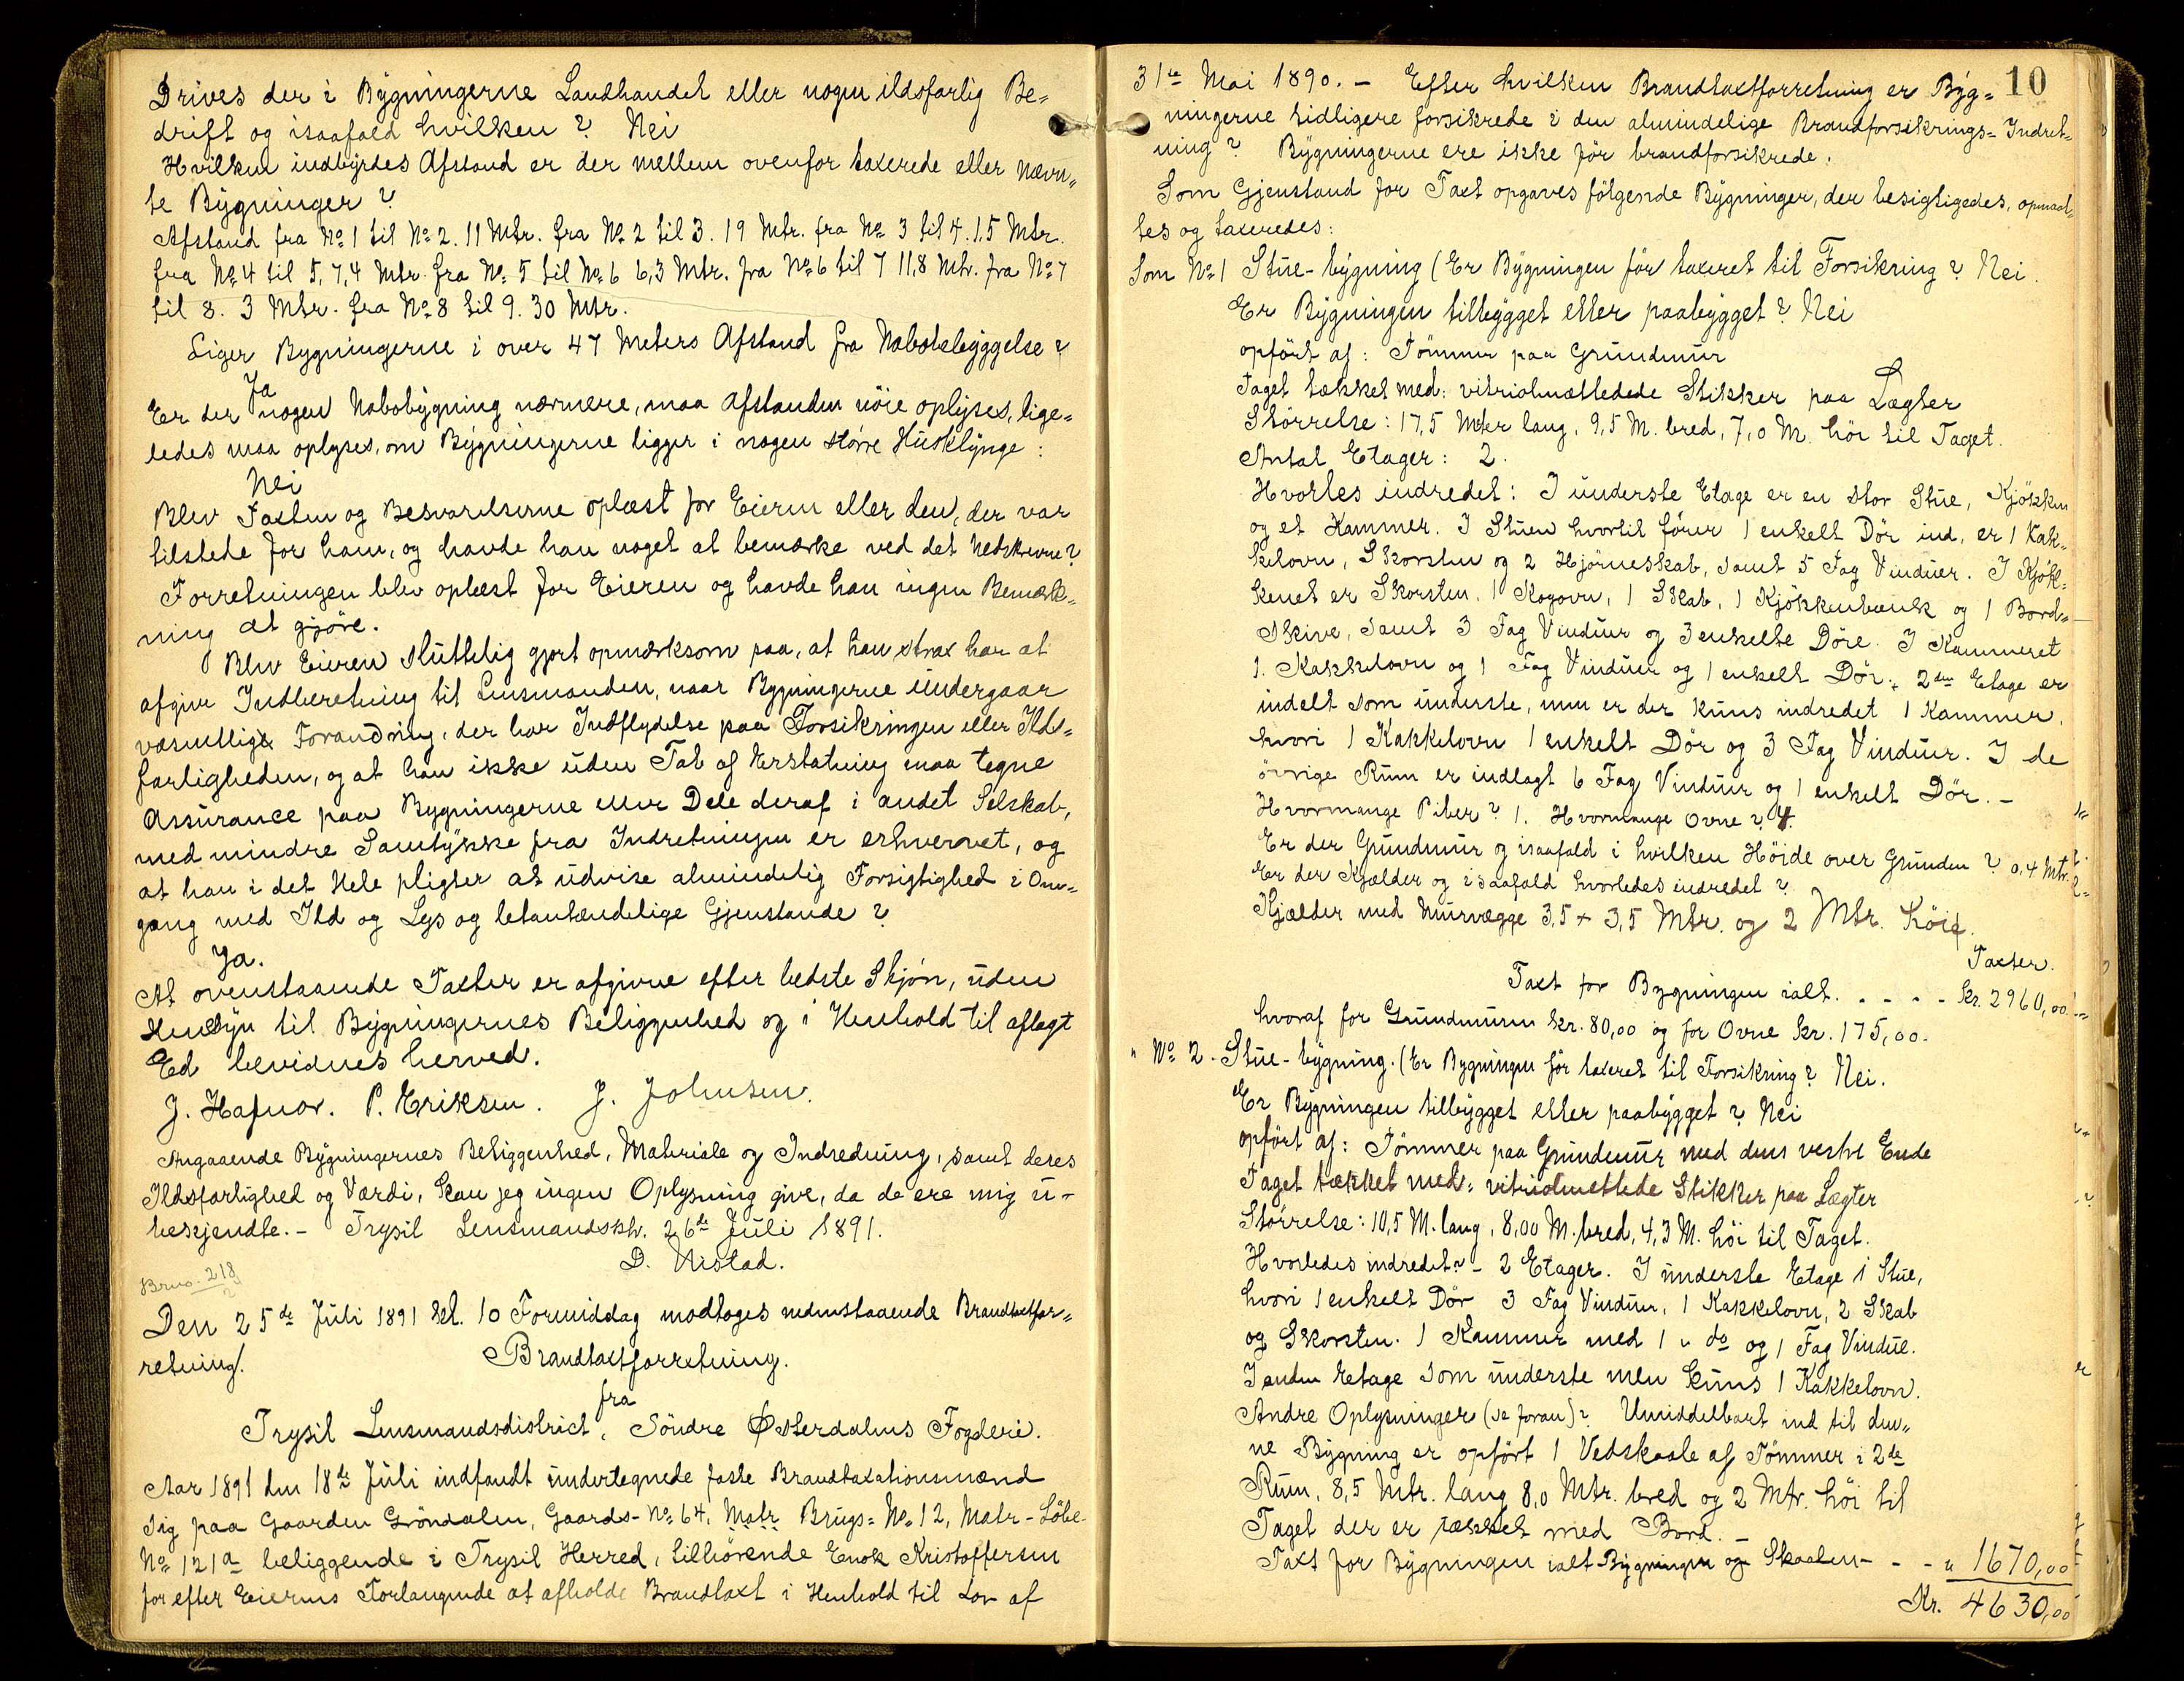 Drives der i Bygningerne Landhandel eller nogen ildsfarlig Be-
drift og isaafald hvilken? Nei
Hvilken indbyrdes Afstand er der mellem ovenfor taxerede eller nævn-
te Bygninger?
Afstand fra No 1 til No 2. 11 Mtr. fra No 2 til 3. 19 Mtr. fra No 3 til 4. 1,5 Mtr.
fra No 4 til 5, 7,4 Mtr. fra No 5 til No 6 6,3 Mtr. fra No 6 til 7 11,8 Mtr. fra No 7
til 8. 3 Mtr. fra No 8 til 9. 30 Mtr.
Liger Bygningerne i over 47 Meters Afstand fra Nabobebyggelse?
Ja
Er der nogen Nabobygning nærmere, maa Afstanden nöie oplyses, lige-
ledes maa oplyses, om Bygningerne ligger i nogen större Husklynge:
Nei
Blev Taxten og Besvarelserne oplæst for Eieren eller den, der var
tilstede for ham, og havde han noget at bemærke ved det Nedskrevne?
Forretningen blev oplæst for Eieren og havde han ingen Bemærk-
ning at gjöre.
Blev Eieren sluttelig gjort opmærksom paa, at han strax har at
afgive Indberetning til Lensmanden, naar Bygningerne undergaar
væsentlige Forandring, der har Indflydelse paa Forsikringen eller Ilds-
farligheden, og at han ikke uden Tab af Erstatning maa tegne
Assurance paa Bygningerne eller Dele deraf i andet Selskab,
med mindre Samtykke fra Indretningen er erhvervet, og
at han i det Hele pligter at udvise almindelig Forsigtighed i Om-
gang med Ild og Lys og letantændelige Gjenstande?
Ja.
At ovenstaaende Taxter er afgivne efter bedste Skjön, uden
Hensyn til Bygningernes Beliggenhed og i Henhold til aflagt
Ed bevidnes herved.
J. Hafnor. P. Eriksen. J. Johnsen.
Angaaende Bygningernes Beliggenhed, Materiale og Indredning, samt deres
Ildsfarlighed og Værdi, kan jeg ingen Oplysning give, da de ere mig u-
bekjendte. - Trysil Lensmandsktr. 26de Juli 1891.
D. Nistad.
Brno. 218
Den 25de Juli 1891 Kl. 10 Formiddag modtoges nedenstaaende Brandtaxtfor-
retning.
Brandtaxtforretning.
fra
Trysil Lensmandsdistrict, Söndre Østerdalens Fogderi.
Aar 1891 den 18de Juli indfandt undertegnede faste Brandtaxationsmænd
sig paa Gaarden Gröndalen, Gaards-No 64, Matr Brugs-No 12, Matr-Löbe-
No 121a beliggende i Trysil Herred, tilhörende Enok Kristoffersen
for efter Eierens Forlangende at afholde Brandtaxt i Henhold til Lov af
10
31te Mai 1890. - Efter hvilken Brandtaxtforretning er Byg-
ningerne tidligere forsikrede i den almindelige Brandforsikrings-Indret-
ning? Bygningerne ere ikke för brandforsikrede.
Som Gjenstand for Taxt opgaves fölgende Bygninger, der besigtigedes, opmaal-
tes og taxeredes:
Som No 1 Stue-bygning (Er Bygningen för taxeret til Forsikring? Nei.
Er Bygningen tilbygget eller paabygget? Nei
opfört af: Tömmer paa Grundmur
Taget tækket med: vitriolmættedede Stikker paa Lægter
Störrelse: 17,5 Meter lang, 9,5 M. bred, 7,0 M. höi til Taget.
Antal Etager: 2.
Hvorles indredet: I underste Etage er en stor Stue, Kjökken
og et Kammer. I Stuen hvortil förer 1 enkelt Dör ind, er 1 Kak-
kelovn, Skorsten og 2 Hjörneskab, samt 5 Fag Vinduer. I Kjök-
kenet er Skorsten, 1 Kogovn, 1 Skab, 1 Kjökkenbænk og 1 Bord-
skive, samt 3 Fag Vinduer og 3 enkelte Döre. I Kammeret
1. Kakkelovn og 1 Fag Vinduer og 1 enkelt Dör. 2den Etage er
indelt som underste, men er der kuns indredet 1 Kammer,
hvori 1 Kakkelovn 1 enkelt Dör og 3 Fag Vinduer. I de
övrige Rum er indlagt 6 Fag Vinduer og 1 enkelt Dör. -
Hvormange Piber? 1. Hvormange Ovne? 4.
Er der Grundmur og isaafald i hvilken Höide over Grunden? 0,4 Mtr.
Er der Kjælder og isaafald hvorledes indredet?
Kjælder med Murvægge 3,5 + 3,5 Mtr. og 2 Mtr. höie.
Taxter.
Taxt for Bygningen ialt. . - - - Kr. 2960,00
hvoraf for Grundmuren Kr. 80,00 og for Ovne Kr. 175,00.
" No 2. Stue-bygning. (Er Bygningen för taxeret til Forsikring? Nei.
Er Bygningen tilbygget eller paabygget? Nei
opfört af: Tömmer paa Grundmur med dens vestre Ende
Taget tækket med: vitriolmettede Stikker paa Lægter
Störrelse: 10,5 M. lang, 8,00 M. bred, 4,3 M. höi til Taget.
Hvorledes indredet? - 2 Etager. I underste Etage 1 Stue,
hvori 1 enkelt Dör 3 Fag Vinduer, 1 Kakkelovn, 2 Skab
og Skorsten. 1 Kammer med 1 " do og 1 Fag Vindue.
I anden Etage som underste men kuns 1 Kakkelovn.
Andre Oplysninger (se foran)? Umiddelbart ind til den-
ne Bygning er opfört 1 Vedskaale af Tömmer i 2de
Rum, 8,5 Mtr. lang 8,0 Mtr. bred og 2 Mtr. höi til
Taget der er tækket med Bord. -
Taxt for Bygningen ialt Bygningen og Skaalen - - - " 1670,00
Kr. 4630,00